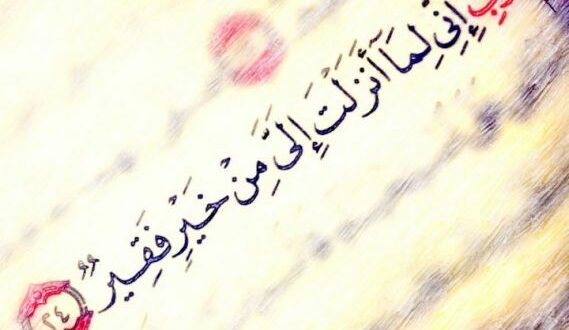 رَبِّ إِنِّى لِمَآ أَنزَلْتَ إِلَىَّ مِنْ خَيْرٍ فَقِيرٌ ٢٤